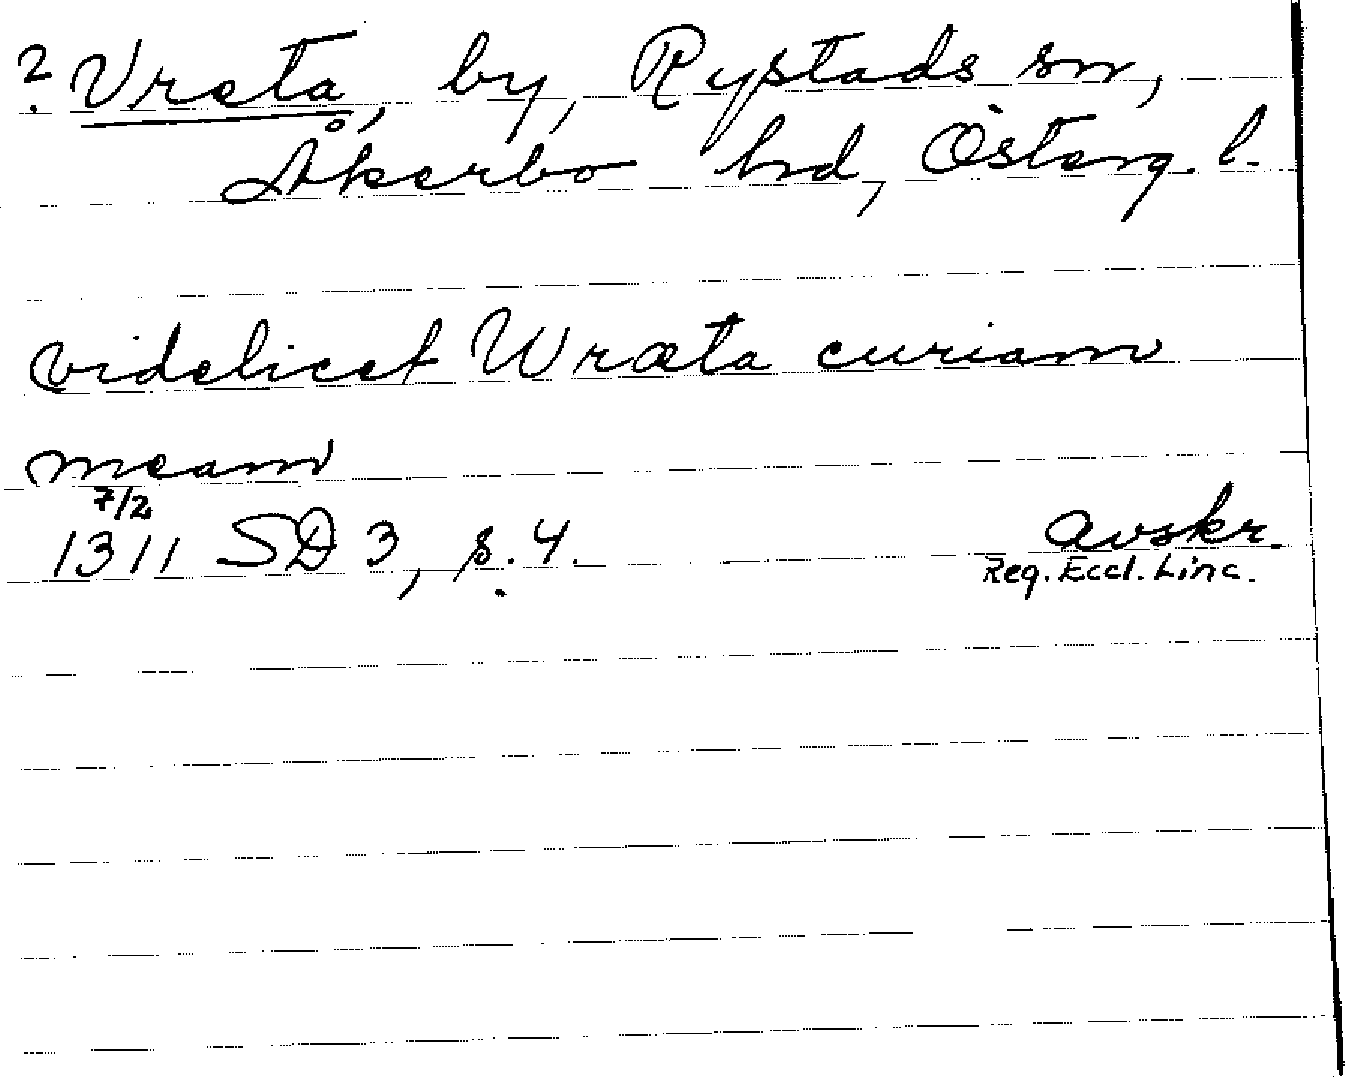 ? Vreta, by, Rystads sn,
Åkerbo hd, Österg. l.
videlicet Wræta curiam
meam
7/2
1311 SD 3, s. 4. avskr.
Reg. Eccl. Linc.